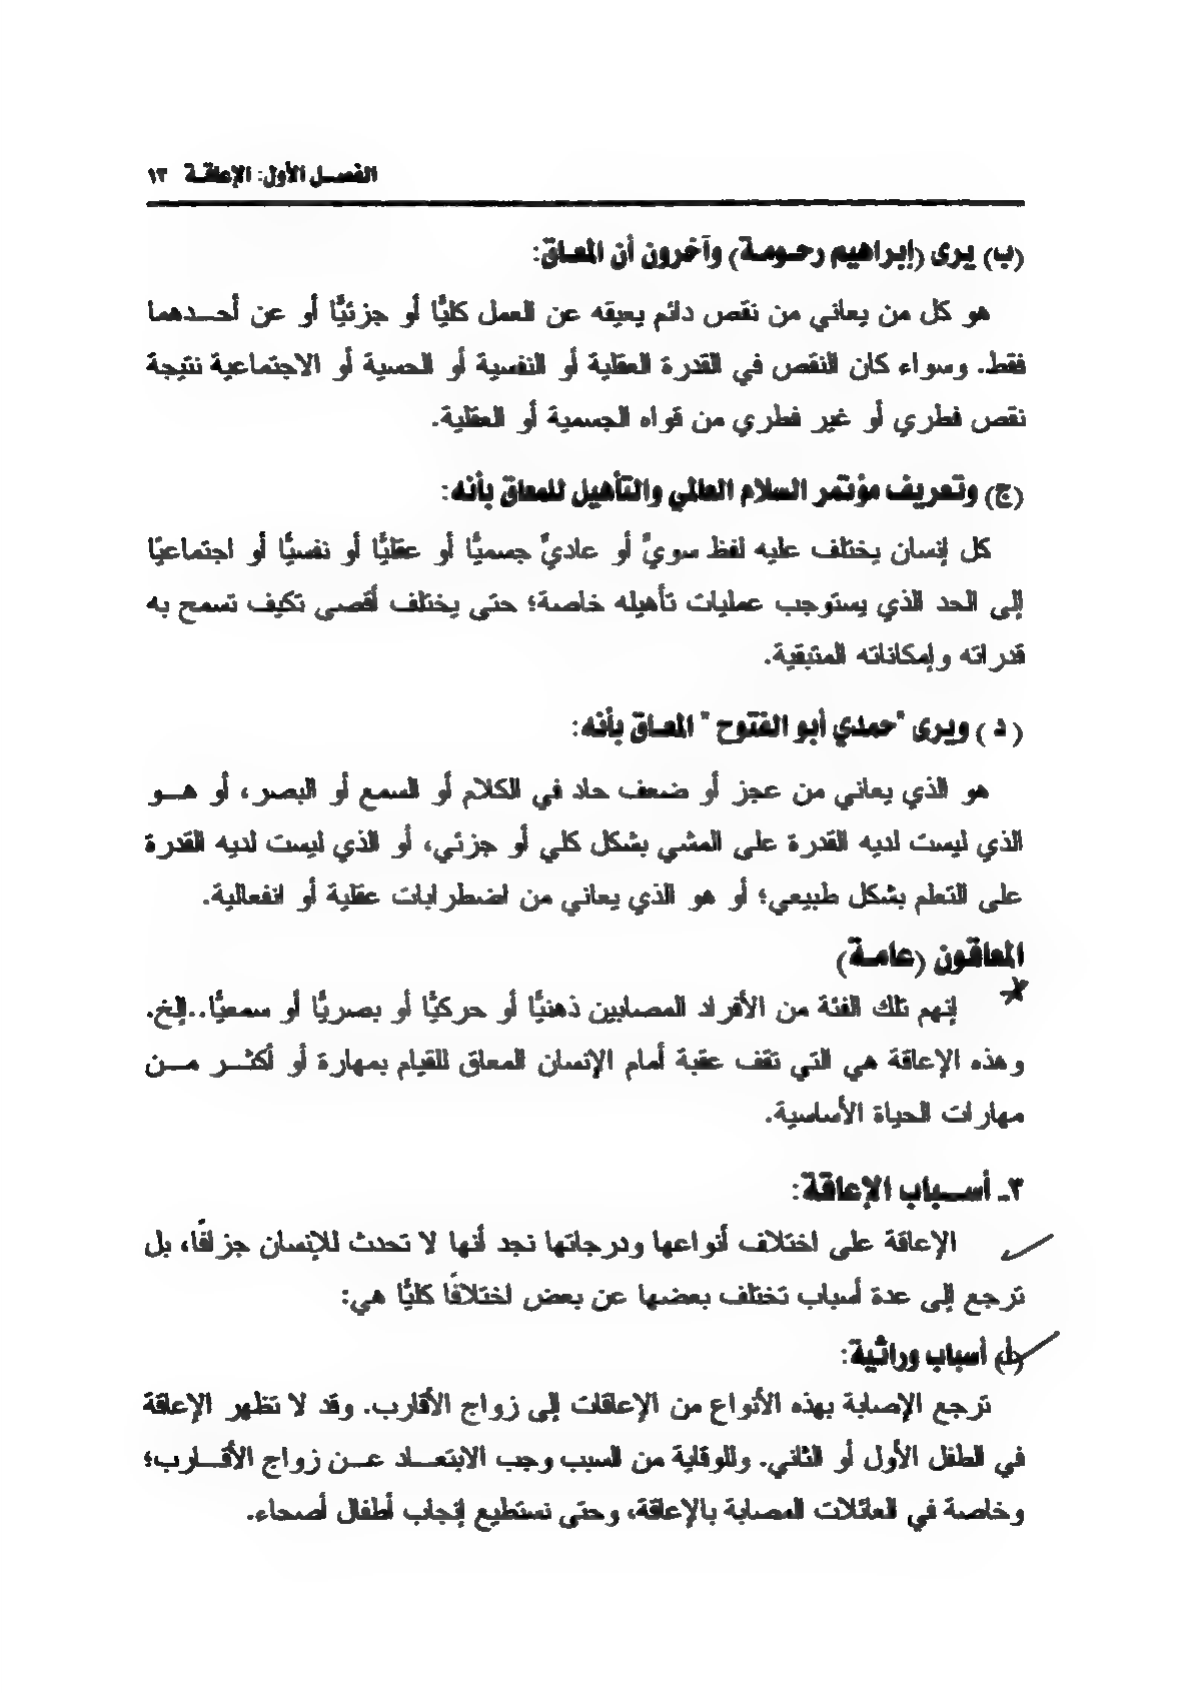 الفصل الأول: الإعاقة ١٣
(ب) يرى (إبراهيم رحومة) وآخرون أن المعاق:
هو كل من يعاني من نقص دائم يعيقه عن العمل كليًّا أو جزئيًّا أو عن أحدهما
فقط. وسواء كان النقص في القدرة العقلية أو النفسية أو الحسية أو الاجتماعية نتيجة
نقص فطري أو غير فطري من قواه الجسمية أو العقلية.
(ج) وتعريف مؤتمر السلام العالمي والتأهيل للمعاق بأنه:
كل إنسان يختلف عليه لفظ سويٌّ أو عاديٌّ جسميًّا أو عقليًّا أو نفسيًّا أو اجتماعيًا
إلى الحد الذي يستوجب عمليات تأهيله خاصة؛ حتى يختلف أقصى تكيف تسمح به
قدراته وإمكاناته المتبقية.
( د ) ويرى "حمدي أبو الفتوح " المعاق بأنه:
هو الذي يعاني من عجز أو ضعف حاد في الكلام أو السمع أو البصر، أو هو
الذي ليست لديه القدرة على المشي بشكل كلي أو جزئي، أو الذي ليست لديه القدرة
على التعلم بشكل طبيعي؛ أو هو الذي يعاني من اضطرابات عقلية أو انفعالية.
المعاقون (عامة)
إنهم تلك الفئة من الأفراد المصابين ذهنيًّا أو حركيًّا أو بصريًّا أو سمعيًّا..إلخ.
وهذه الإعاقة هي التي تقف عقبة أمام الإنسان المعاق للقيام بمهارة أو أكثر من
مهارات الحياة الأساسية.
٣ـ أسباب الإعاقة:
الإعاقة على اختلاف أنواعها ودرجاتها نجد أنها لا تحدث للإنسان جزافًا، بل
ترجع إلى عدة أسباب تختلف بعضها عن بعض اختلافًا كليًّا هي:
(أ) أسباب وراثية:
ترجع الإصابة بهذه الأنواع من الإعاقات إلى زواج الأقارب. وقد لا تظهر الإعاقة
في الطفل الأول أو الثاني. وللوقاية من السبب وجب الابتعاد عن زواج الأقارب؛
وخاصة في العائلات المصابة بالإعاقة، وحتى نستطيع إنجاب أطفال أصحاء.